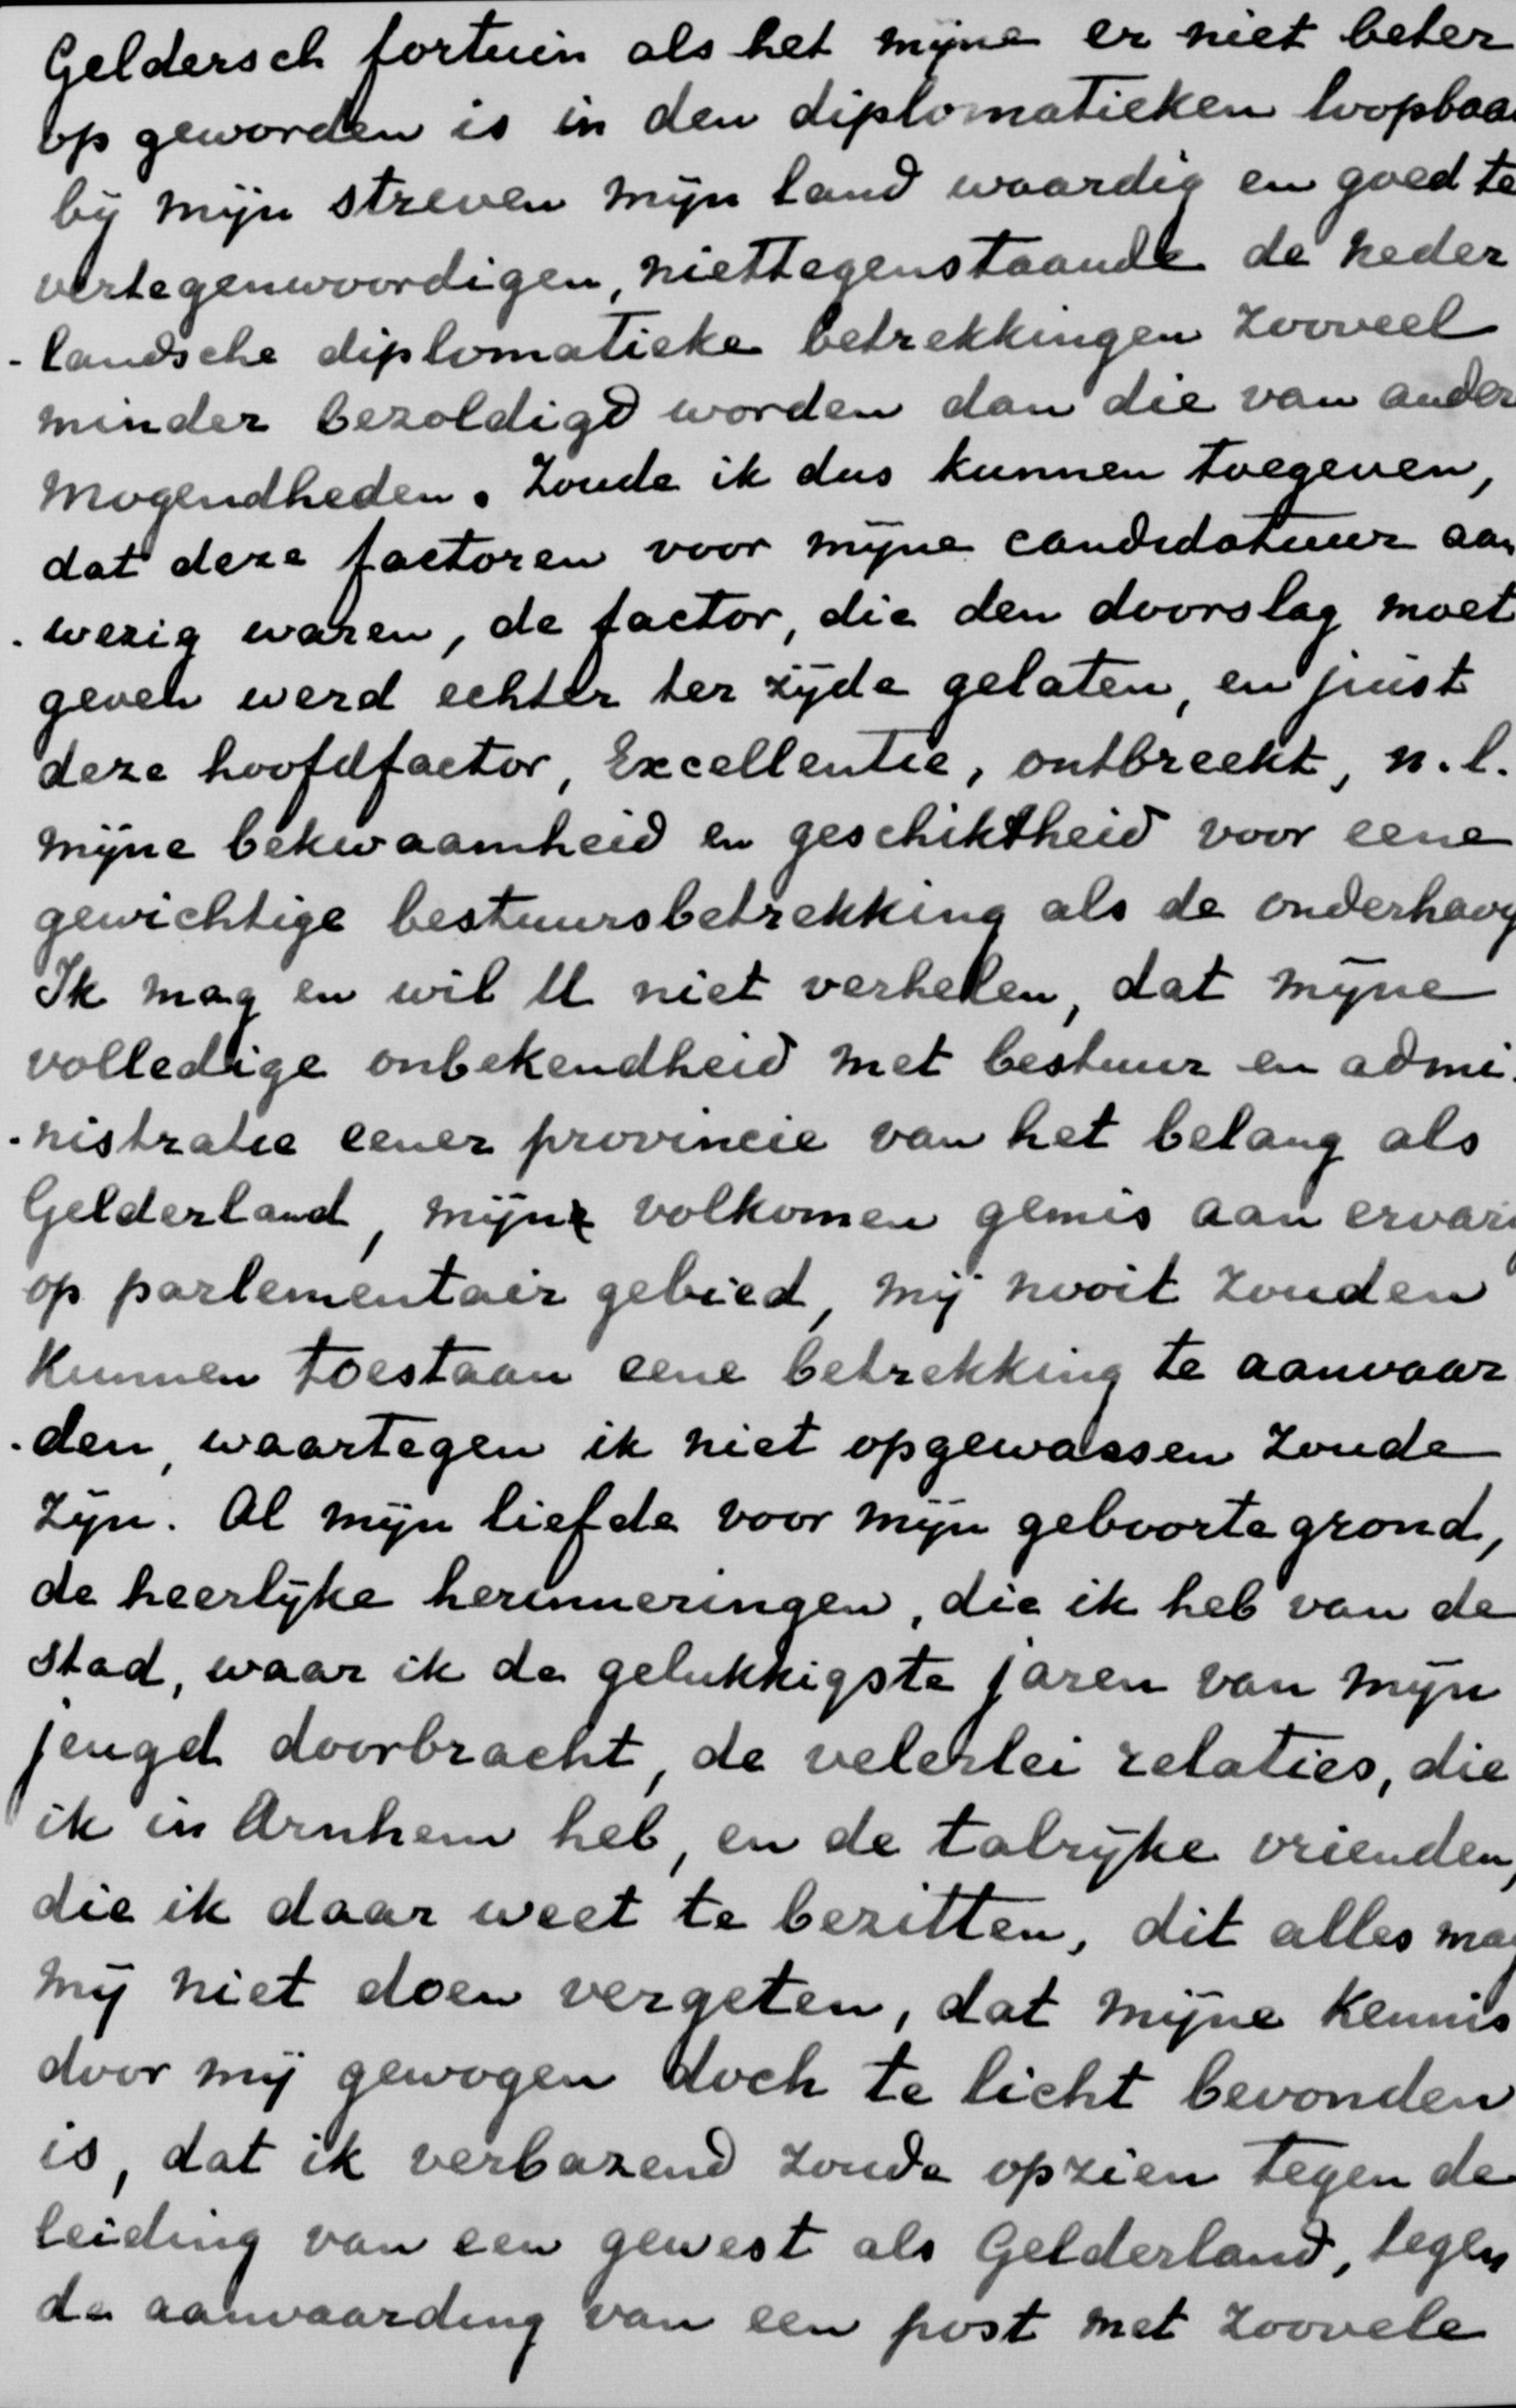 Geldersch fortuin als het mijne er niet beter
op geworden is in den diplomatieken loopbaa
bij mijn streven mijn land waardig en goed te
vertegenwoordigen, niettegenstaande de neder
- landsche diplomatieke betrekkingen zooveel
minder bezoldigd worden dan die van ander
mogendheden. Zoude ik dus kunnen toegeven,
dat deze factoren voor mijne candidatuur aan
- wezig waren, de factor, die den doorslag moet
geven werd echter ter zijde gelaten, en juist
deze hoofdfactor, Excellentie, ontbreekt, n.l.
mijne bekwaamheid en geschiktheid voor eene
gewichtige bestuursbetrekking als de onderhavig
Ik mag en wil U niet verhelen, dat mijne
volledige onbekendheid met bestuur en admi-
- nistratie eener provincie van het belang als
Gelderland, mijne volkomen gemis aan ervari
op parlementair gebied, mij nooit zouden
kunnen toestaan eene betrekking te aanvaar
- den, waartegen ik niet opgewassen zoude
zijn. Al mijn liefde voor mijn geboortegrond,
de heerlijke herinneringen, die ik heb van de
stad, waar ik de gelukkigste jaren van mijn
jeugd doorbracht, de velerlei relaties, die
ik in Arnhem heb, en de talrijke vrienden,
die ik daar weet te bezitten, dit alles mag
mij niet doen vergeten, dat mijne kennis
door mij gewogen doch te licht bevonden
is, dat ik verbazend zoude opzien tegen de
leiding van een gewest als Gelderland, tegen
de aanvaarding van een post met zoovele